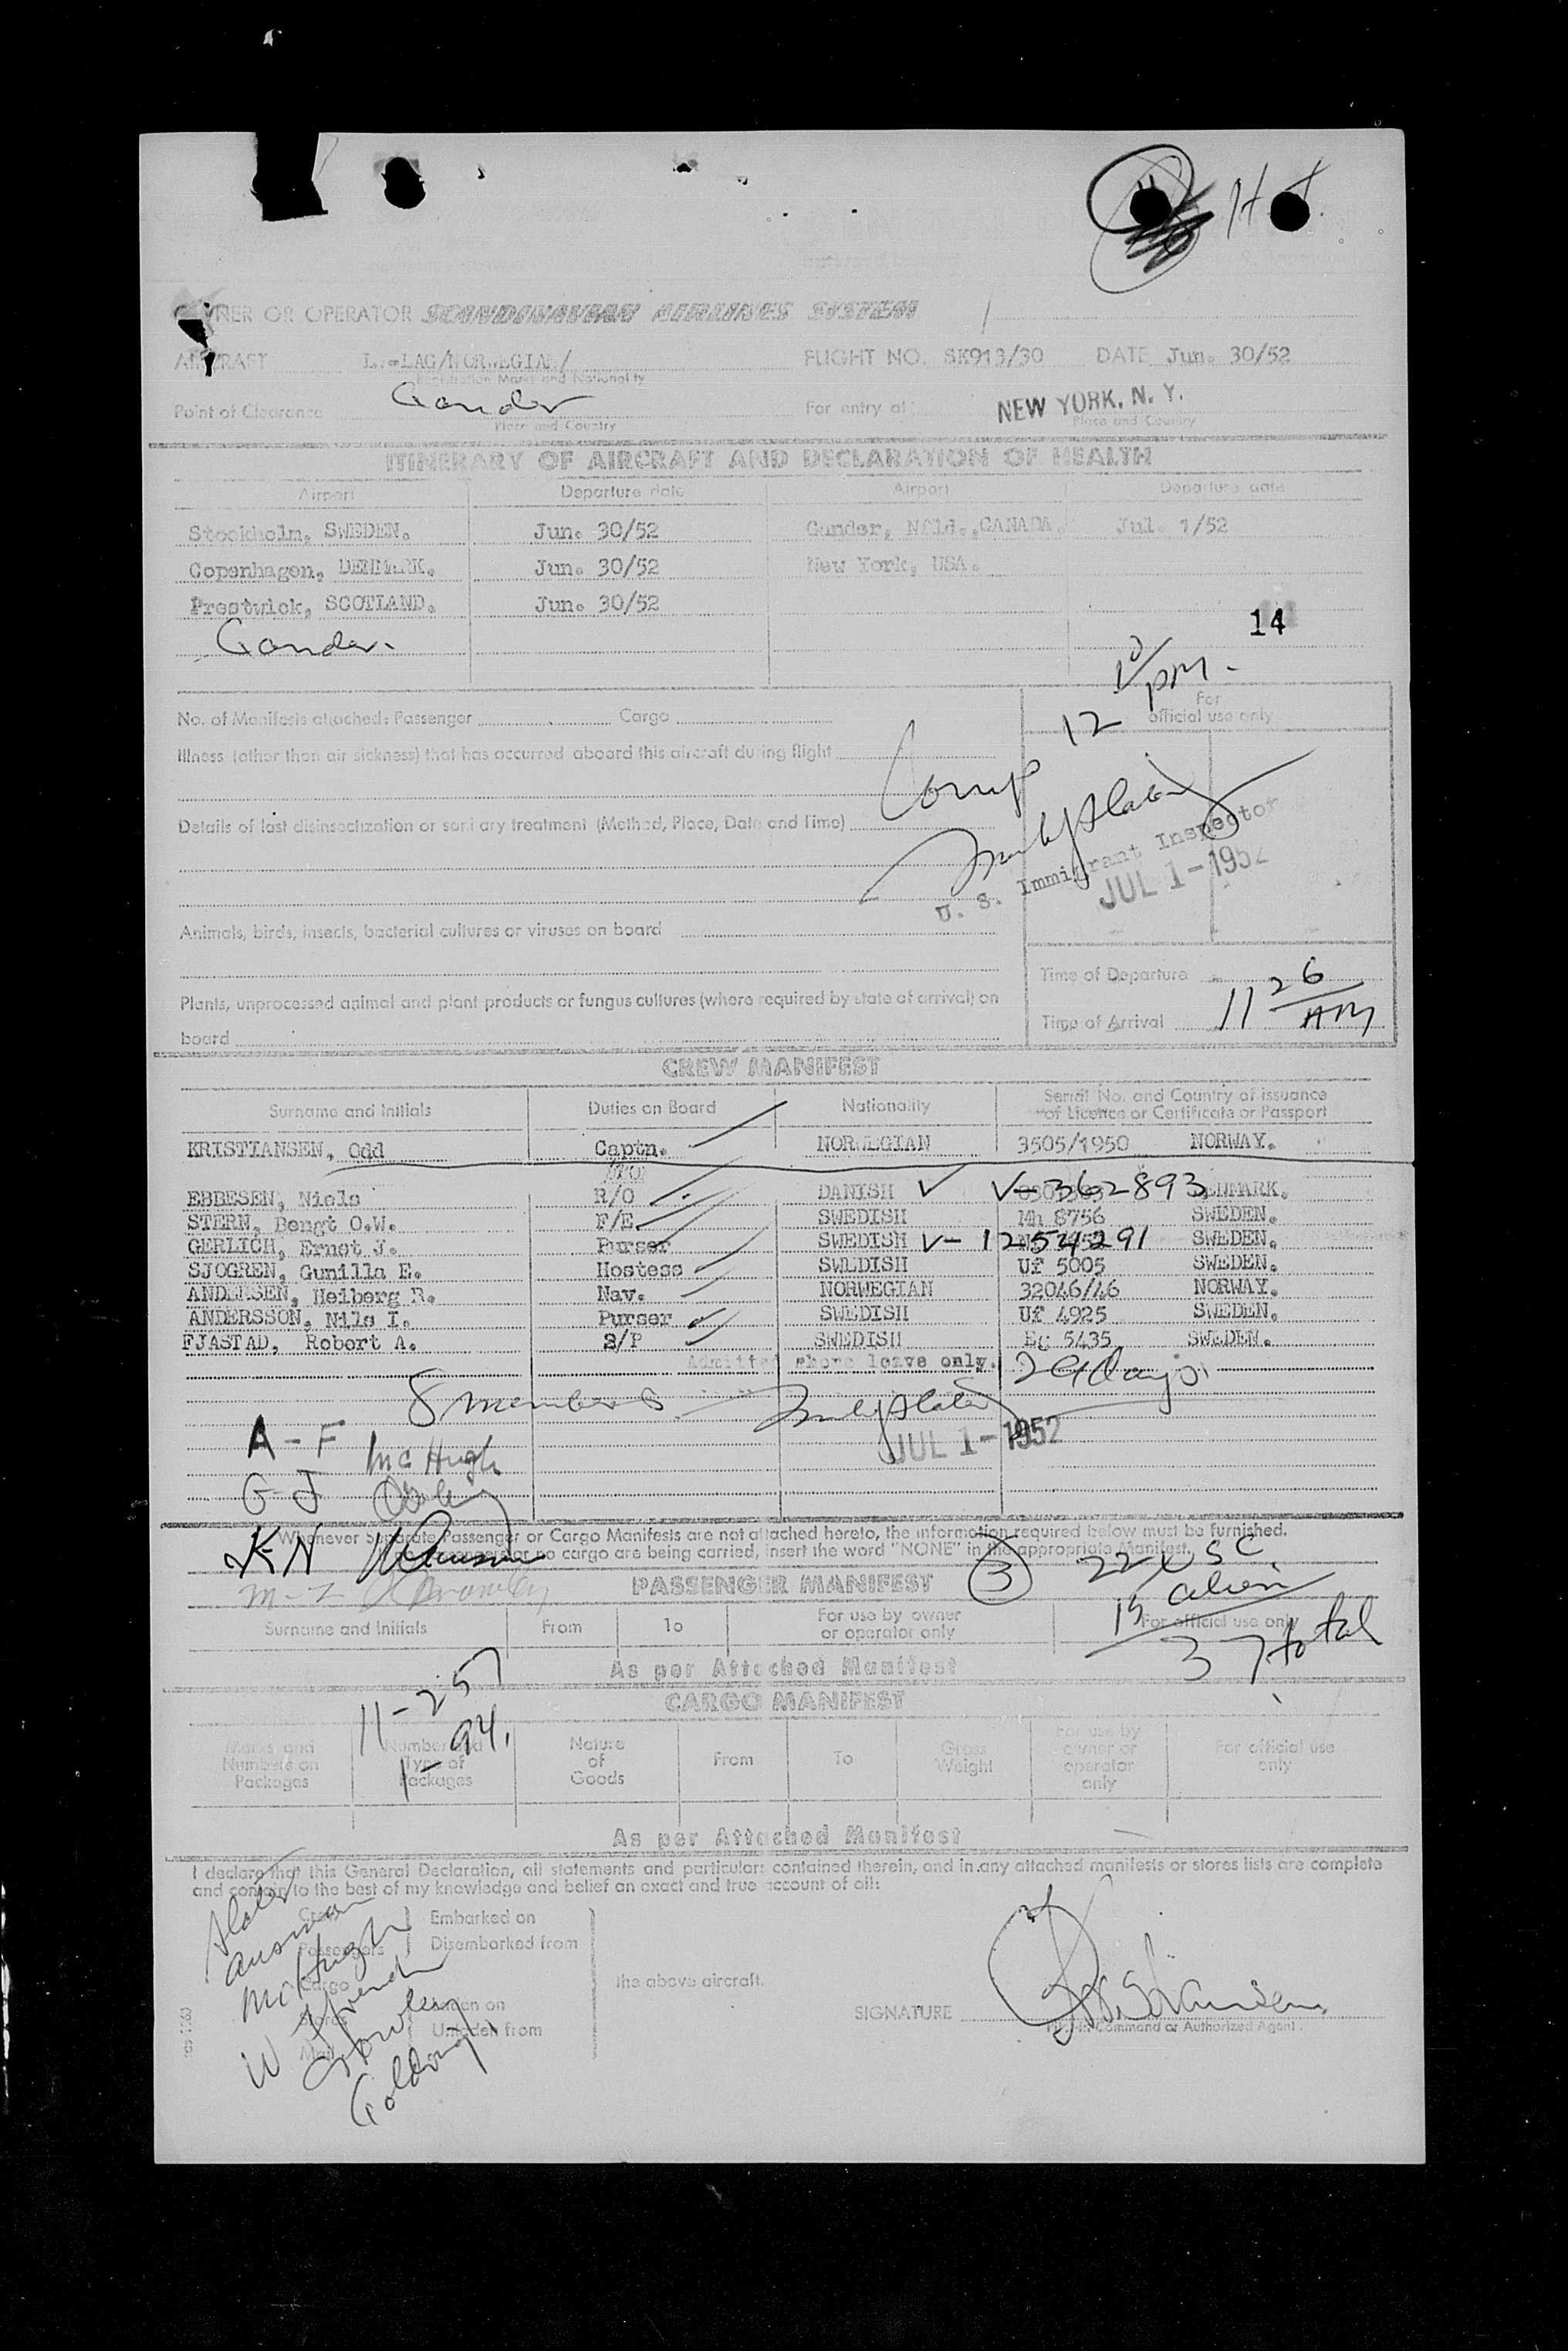 OWNER OR OPERATOR SCANDINAVIAN AIRLINES SYSTEM
AIRCRAFT LN-LAG/NORWEGIAN/ FLIGHT NO. SK913/30 DATE Jun. 30/52
Registration Marks and Nationality
Point of Clearance Gander For entry at NEW YORK, N. Y.
Place and Country Place and Country
ITINERARY OF AIRCRAFT AND DECLARATION OF HEALTH
Airport Departure date Airport Departure date
Stockholm, SWEDEN. Jun. 30/52 Gander, Nfld., CANADA. Jul. 1/52
Copenhagen, DENMARK. Jun. 30/52 New York, USA.
Prestwick, SCOTLAND. Jun. 30/52
14
Gander.
PM
12
No. of Manifests attached: Passenger Cargo
For official use only
Illness (other than air sickness) that has occurred aboard this aircraft during flight
Comp
Details of last disinsectization or sanitary treatment (Method, Place, Date and Time)
U. S. Immigrant Inspector
JUL 1-1952
Animals, birds, insects, bacterial cultures or viruses on board
Time of Departure
Plants, unprocessed animal and plant products or fungus cultures (where required by state of arrival) on
board
Time of Arrival 11 26 AM
CREW MANIFEST
Surname and Initials Duties on Board Nationality Serial No. and Country of issuance of Licence or Certificate or Passport
KRISTIANSEN, Odd Captn. NORWEGIAN 3505/1950 NORWAY.
EBBESEN, Niels R/O DANISH V-362893 DENMARK.
STERN, Bengt O.W. F/E SWEDISH Mh 8756 SWEDEN.
GERLICH, Ernst J. Purser SWEDISH V-1254291 SWEDEN.
SJOGREN, Gunilla E. Hostess SWEDISH Uf 5005 SWEDEN.
ANDERSEN, Heiberg R. Nav. NORWEGIAN 32046/46 NORWAY.
ANDERSSON, Nils I. Purser SWEDISH Uf 4925 SWEDEN.
FJASTAD, Robert A. S/P SWEDISH Eg 5435 SWEDEN.
Admitted shore leave only. 29 days
8 members
JUL 1-1952
A-F McHugh
G-J
K-N
Whenever Separate Passenger or Cargo Manifests are not attached hereto, the information required below must be furnished.
no cargo are being carried, insert the word "NONE" in the appropriate Manifest.
M-Z
PASSENGER MANIFEST 3 22 USC
15 alien
37 total
Surname and Initials From To For use by owner or operator only For official use only
As per Attached Manifest
11-257
1-94.
CARGO MANIFEST
Marks and Numbers on Packages Number and Type of Packages Nature of Goods From To Gross Weight For use by owner or operator only For official use only
As per Attached Manifest
I declare that this General Declaration, all statements and particulars contained therein, and in any attached manifests or stores lists are complete
and contain to the best of my knowledge and belief an exact and true account of all:
Crew
Passengers Embarked on
Disembarked from
Cargo
Stores Laden on
Mail Unladen from
the above aircraft.
McHugh
SIGNATURE
Pilot in Command or Authorized Agent.